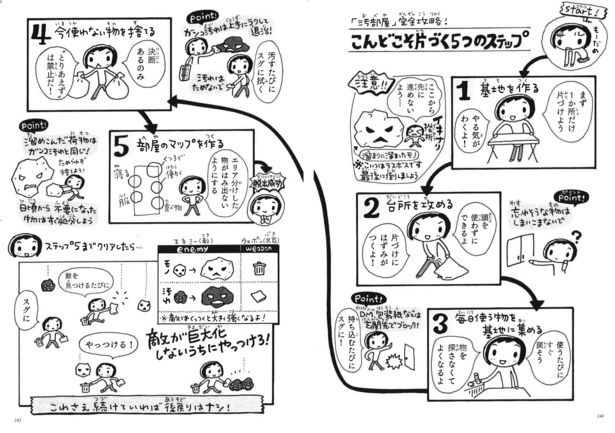 「汚部屋」完全攻略！
こんどこそ片づく5つのステップ
start!
もーだめ
1 基地を作る
まず
1か所だけ
片づけよう
やる気が
わくよ！
注意!!
ここから
先に
進めない
よう…
イキナリ
溜まりに溜まったモノ
※こいつはラスボスです
最後に倒しましょう
2 台所を攻める
頭を
使わずに
できるよ
片づけに
はずみが
つくよ！
Point!
忘れそうな物は
しまいこまないで
?
3 毎日使う物を
基地に集める
使うたびに
すぐ
戻そう
物を
探さなくて
よくなるよ
Point!
DM、包装紙などは
玄関先でブロック！
持ち込むたびに
スグに！
4 今使わない物を捨てる
決断
あるのみ
“とりあえず”
は禁止だ！
Point!
ガンコ汚れは上手にふやして
退治！
汚れは
ためないで
汚すたびに
スグに拭く
Point!
溜めこんだ荷物は
ガンコ汚れと同じ！
ためらわず
捨てよう！
日頃から不要になった
物はすぐ処分しよう
5 部屋のマップを作る
くつろぐ
寝る
働く
服
食べ物
エリア分けした
物がはみ出ない
ようにする
脱出成功
ステップ5までクリアしたら…
敵を
見つけるたびに
スグに
やっつける！
エネミー（敵）
enemy
ウェポン（武器）
weapon
モノ
汚れ
※敵はくっつくと大きく強くなるよ！
敵が巨大化
しないうちにやっつけろ！
これさえ続けていれば後戻りはナシ！
145
144